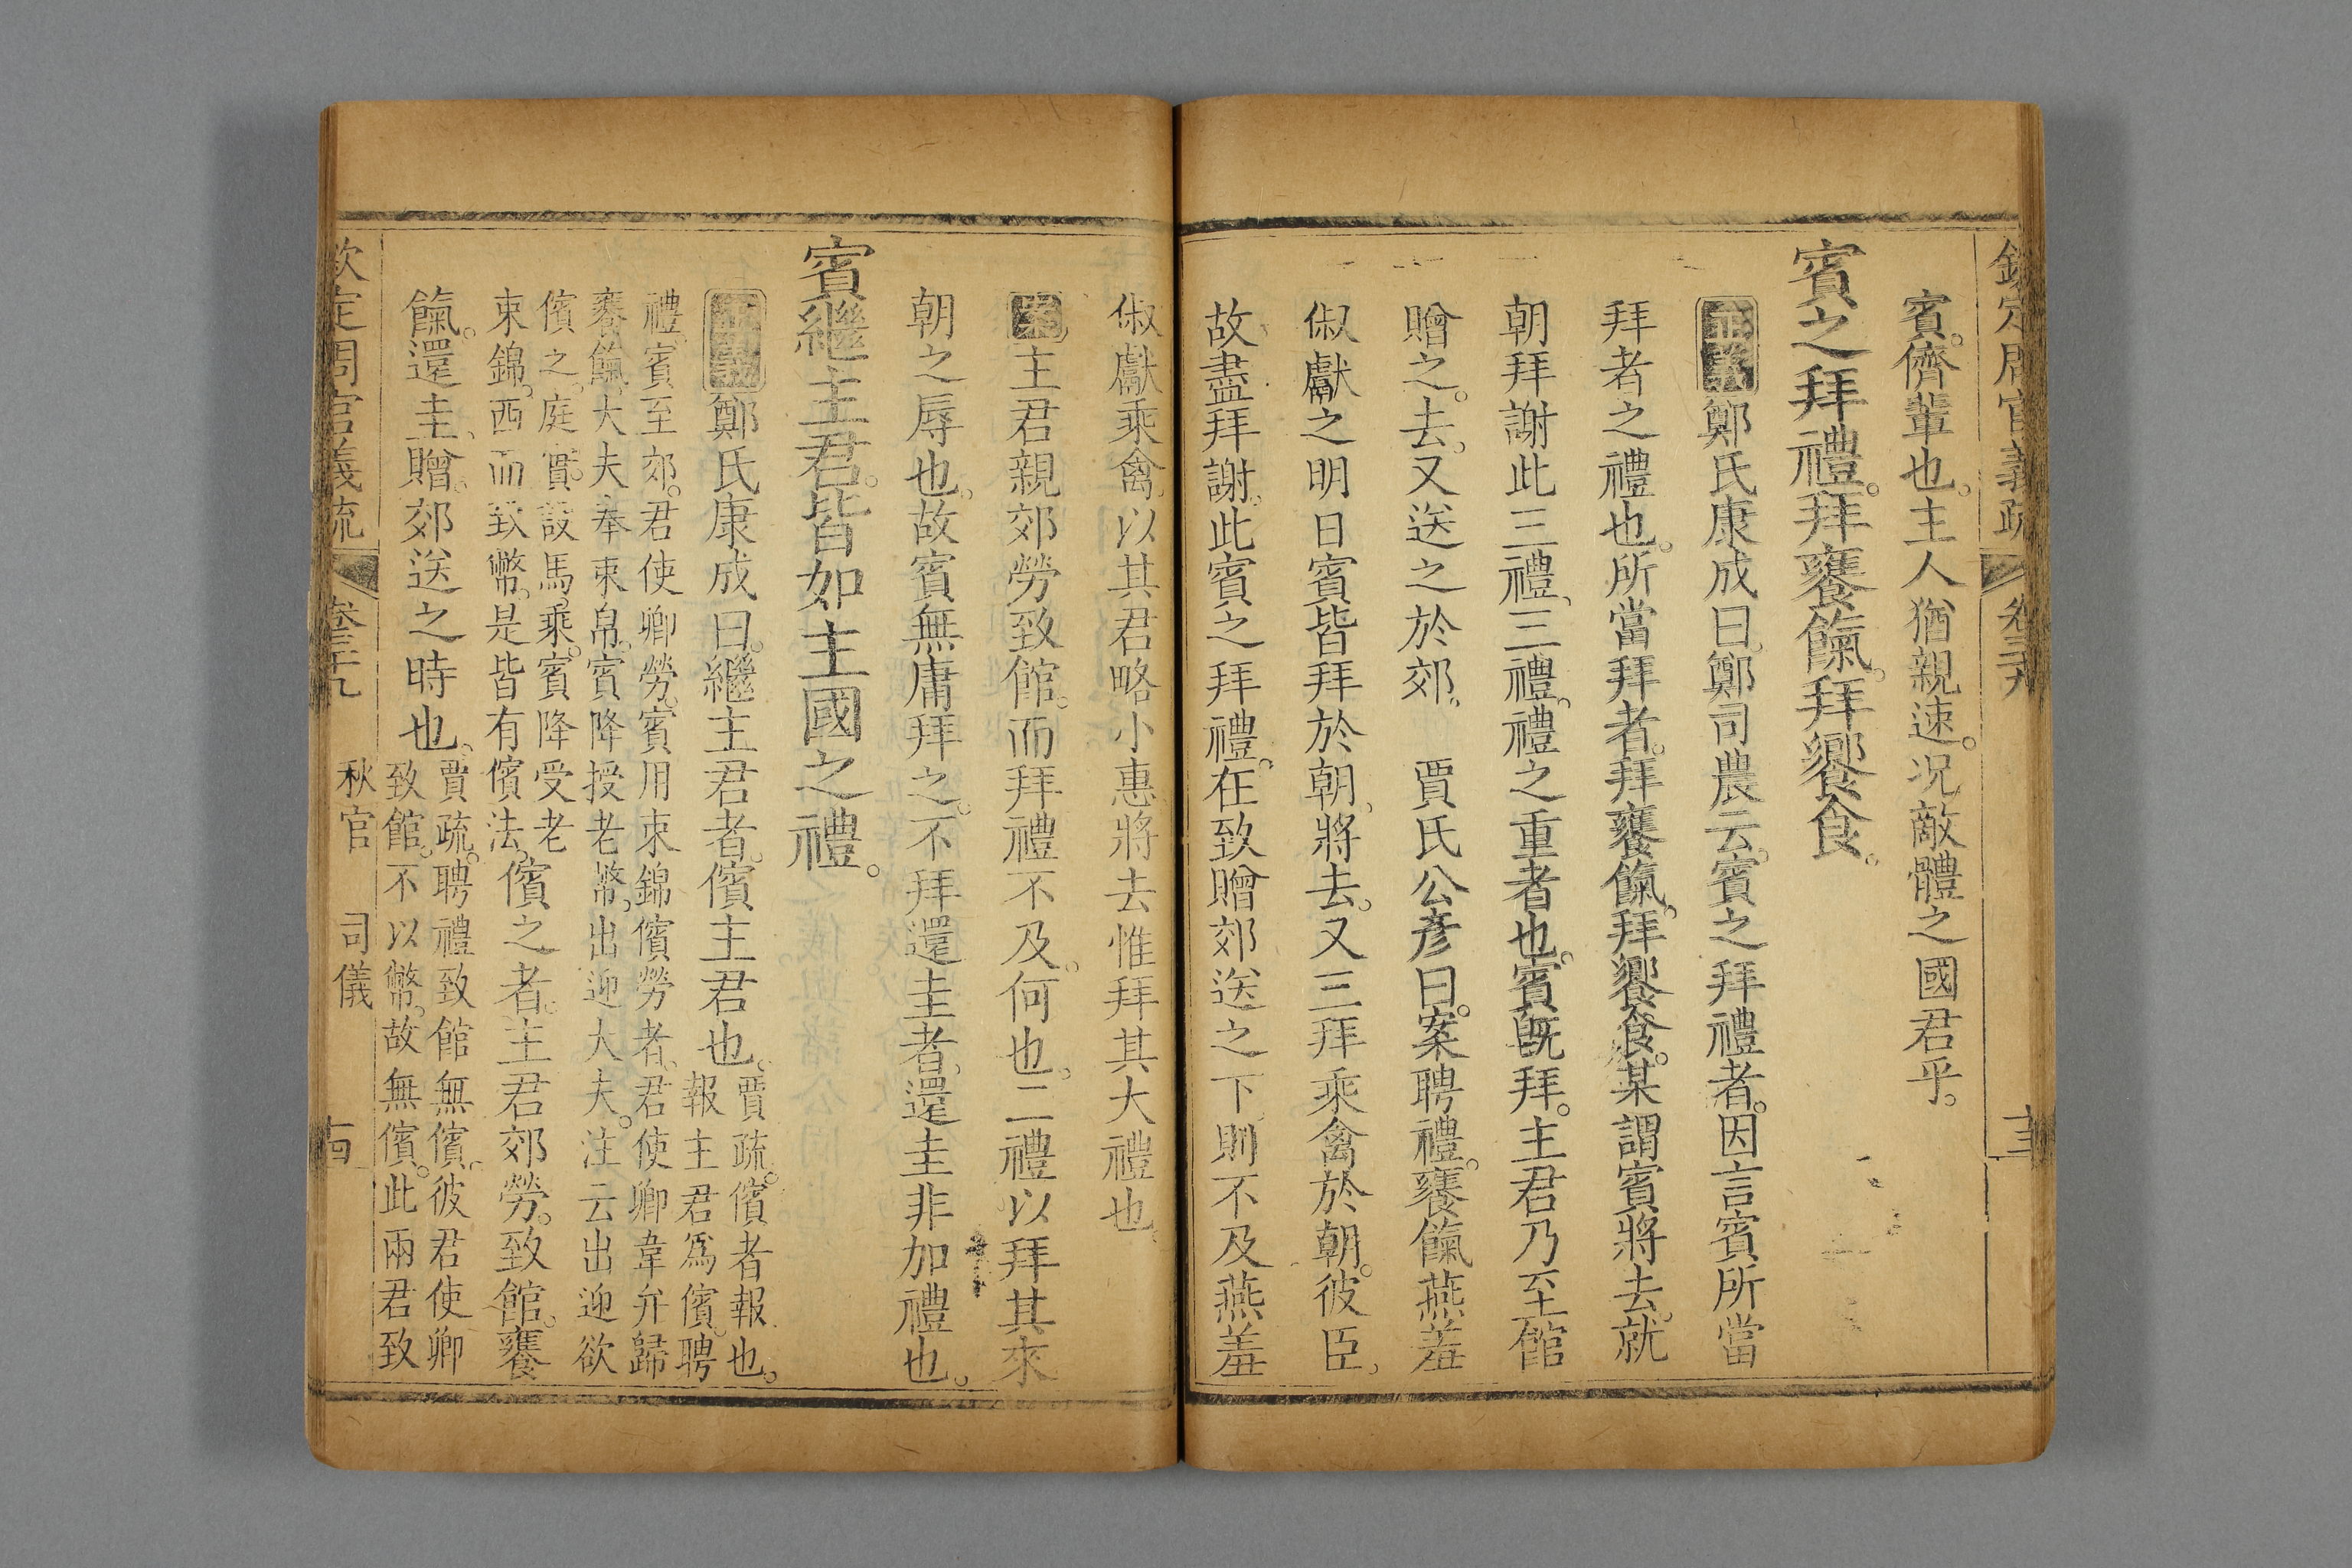 欽定周官義疏 卷三十九 十三
賓。儕輩也。主人猶親速。况敵體之國君乎。
賓之拜禮。拜饔餼。拜饗食。
正義鄭氏康成曰。鄭司農云。賓之拜禮者。因言賓所當
拜者之禮也。所當拜者。拜饔餼。拜饗食。某謂賓將去。就
朝拜謝此三禮。三禮。禮之重者也。賓旣拜。主君乃至館
贈之。去。又送之於郊。 賈氏公彥曰。案聘禮。饔餼燕羞
俶獻之明日。賓皆拜於朝。將去。又三拜乘禽於朝。彼臣。
故盡拜謝。此賓之拜禮。在致贈郊送之下。則不及燕羞
俶獻乘禽。以其君略小惠。將去惟拜其大禮也。
案主君親郊勞致館。而拜禮不及。何也。二禮以拜其來
朝之辱也。故賓無庸拜之。不拜還圭者。還圭非加禮也。
賓繼主君。皆如主國之禮。
正義鄭氏康成曰。繼主君者。儐主君也。賈疏。儐者報也。
報主君爲儐。聘
禮。賓至郊。君使卿勞。賓用束錦儐勞者。君使卿韋弁歸
饔餼。大夫奉束帛。賓降授老幣。出迎大夫。注云出迎欲
儐之。庭實設馬乘。賓降受老
束錦。西而致幣。是皆有儐法。儐之者。主君郊勞。致館。饔
餼。還圭。贈。郊送之時也。賈疏。聘禮致館無儐。彼君使卿
致館。不以幣。故無儐。此兩君致
欽定周官義疏 卷三十九 秋官 司儀 十四